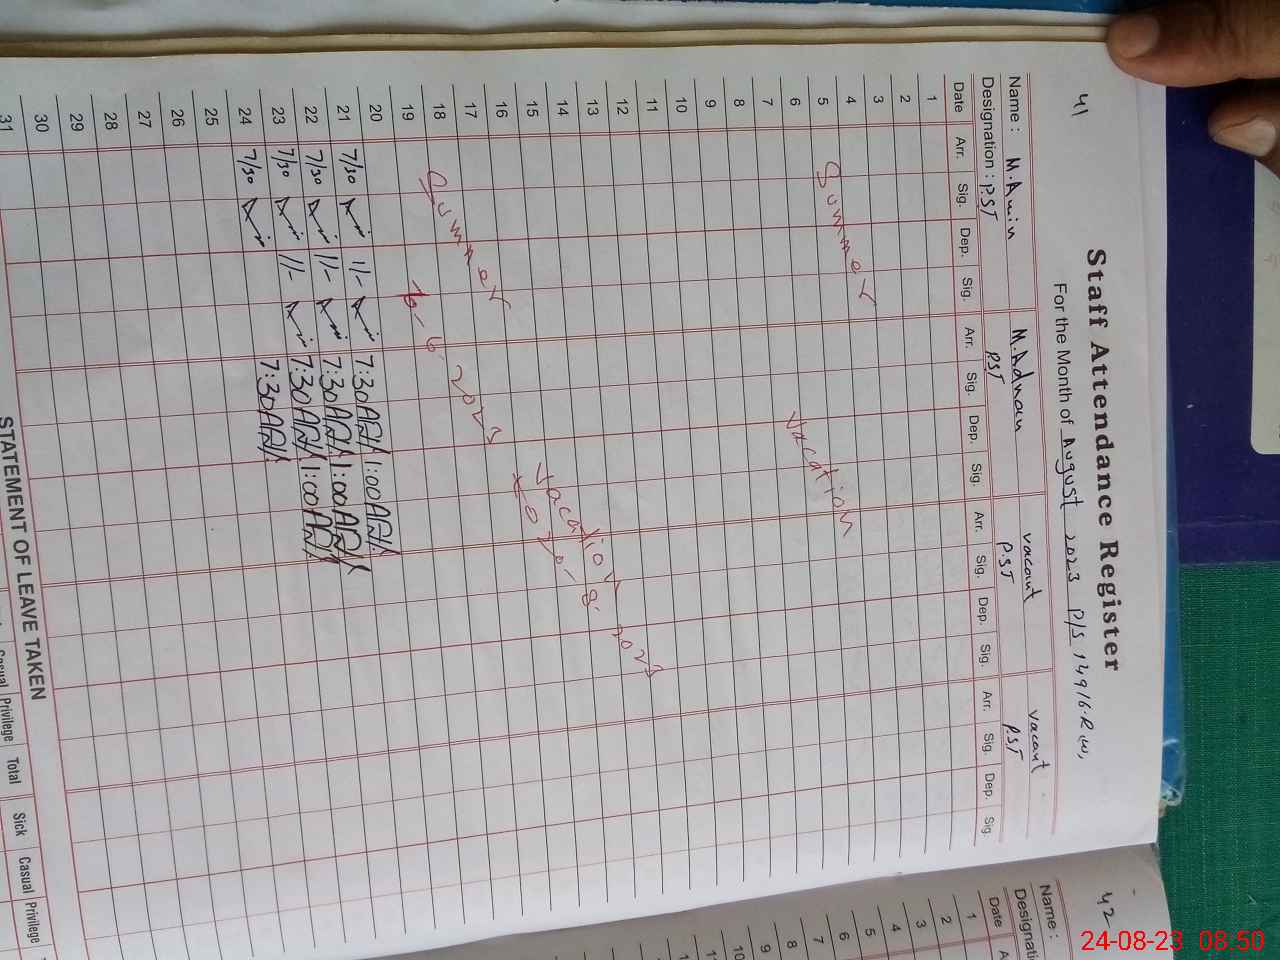 41
Staff Attendance Register
For the Month of August 2023 P/S 149/6.R W,
Name : M. Amin M. Adnan vacant vacant
Designation : P.S.T P.S.T P.S.T P.S.T
Date Arr. Sig. Dep. Sig. Arr. Sig. Dep. Sig. Arr. Sig. Dep. Sig. Arr. Sig. Dep. Sig.
1
2
3
4
5
6
7
8
9
10
11
12
13
14
15
16
17
18
19
Summer vacation
Summer vacation
6 2023 to 20-8-2023
20
21 7/30 11/- 7:30AM 1:00
22 7/30 11/- 7:30AM 1:00
23 7/30 11/- 7:30AM 1:00
24 7/30 7:30AM
25
26
27
28
29
30
31
STATEMENT OF LEAVE TAKEN
Casual Privilege Total Sick Casual Privilege
42
Name :
Date
1
2
3
4
5
6
7
8
9
10
24-08-23 08:50